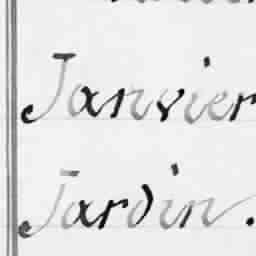 Janvier
Jardin.